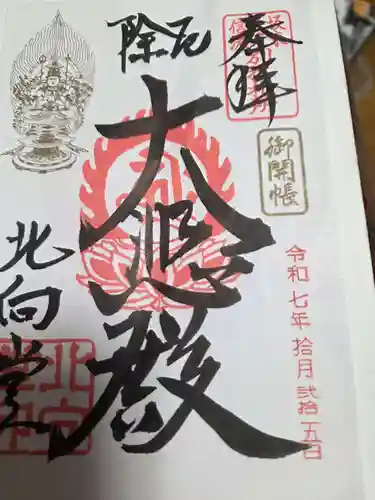 奉拝
厄除
大悲殿
北向堂
御開帳
令和七年 拾月 弐拾五日